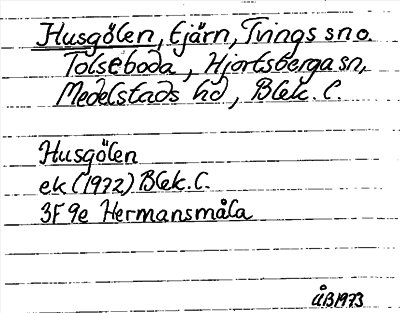 Husgölen, tjärn, Tvings sn o.
Tolseboda, Hjortsberga sn,
Medelstads hd, Blek. l.
Husgölen
ek (1972) Blek. l.
3F 9e Hermansmåla
ÅB1973